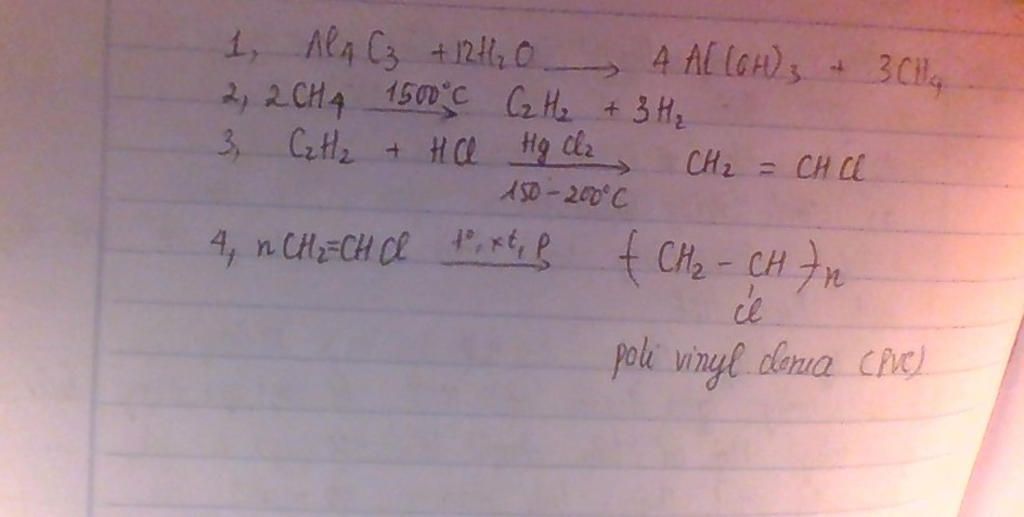 1, Al4C3 + 12H2O → 4 Al(OH)3 + 3CH4
2, 2CH4 1500°C → C2H2 + 3H2
3, C2H2 + HCl HgCl2 → CH2 = CHCl
150-200°C
4, nCH2=CHCl t°, xt, p → ( CH2 - CH )n
Cl
poli vinyl clorua (PVC)